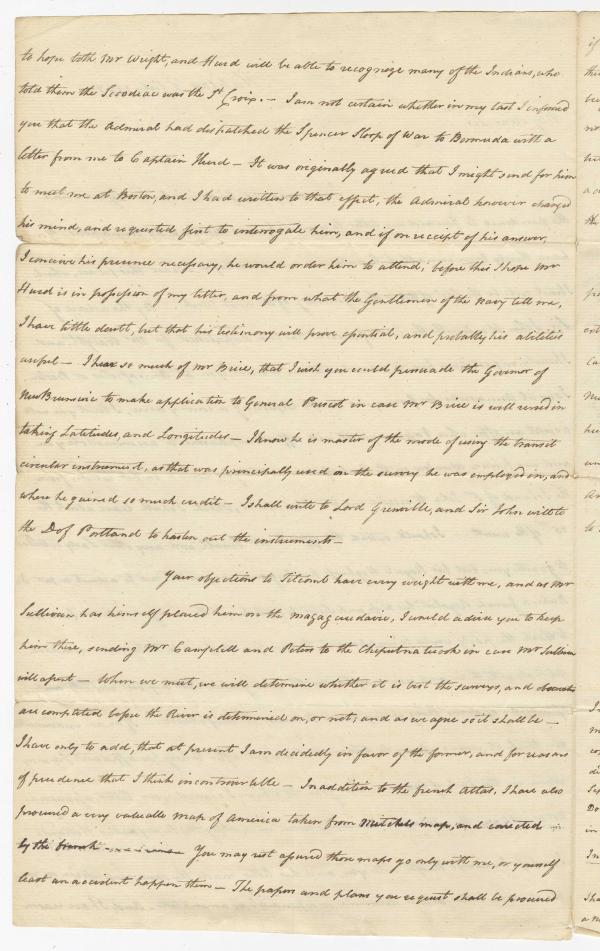 to hope both Mr Wright, and Hurd will be able to recognize many of the Indians, who
told them the Scoodiac was the St Croix. — I am not certain whether in my last I informed
you that the Admiral had dispatched the Spencer Sloop of War to Bermuda with a
letter from me to Captain Hurd — It was originally agreed that I might send for him
to meet me at Boston, and I had written to that effect, the Admiral however changed
his mind, and requested first to interrogate him, and if on receipt of his answer,
I conceive his presence necessary, he would order him to attend; before this I hope Mr
Hurd is in possession of my letter, and from what the Gentlemen of the Navy tell me,
I have little doubt, but that his testimony will prove essential, and probably his abilities
useful — I hear so much of Mr Bixie, that I wish you could persuade the Govenor of
New Brunswic to make application to General Prescot in case Mr Bixie is well versed in
taking Latitudes, and Longitudes — I know he is master of the mode of using the transit
circular instrument, as that was principally used on the survey he was employed in, and
where he gained so much credit — I shall write to Lord Grenville, and Sir John will to
the D of Portland to hasten out the instruments —
Your objections to Titcomb have every weight with me, and as Mr
Sullivan has himself placed him on the magaguadavic, I would advise you to keep
him there, sending Mr Campbell and Peters to the Cheputnatecook in case Mr Sullivan
will assent — When we meet, we will determine whether it is best the surveys, and
are completed before the River is determined on, or not, and as we agree so it shall be —
I have only to add, that at present I am decidedly in favor of the former, and for reasons
of prudence that I think incontrovertible — In addition to the french Atlas, I have also
procured a very valuable map of America taken from Mitchels map, and corrected in
by the french You may rest assured those maps go only with me, or yourself
least an accident happen them — The papers and plans you request shall be procured